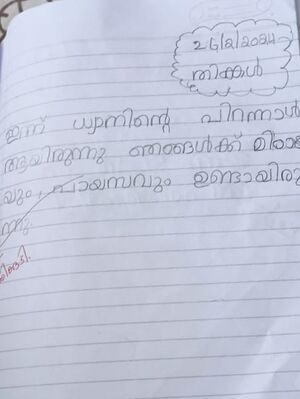 26/2/2024
തിങ്കൾ
ഇന്ന് ധ്യാനിന്റെ പിറന്നാൾ
ആയിരുന്നു ഞങ്ങൾക്ക് മിഠാ
യും, പായസവും ഉണ്ടായിരു
ന്നു.